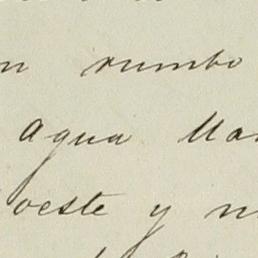 n rumbo
agua Ma
oeste y n